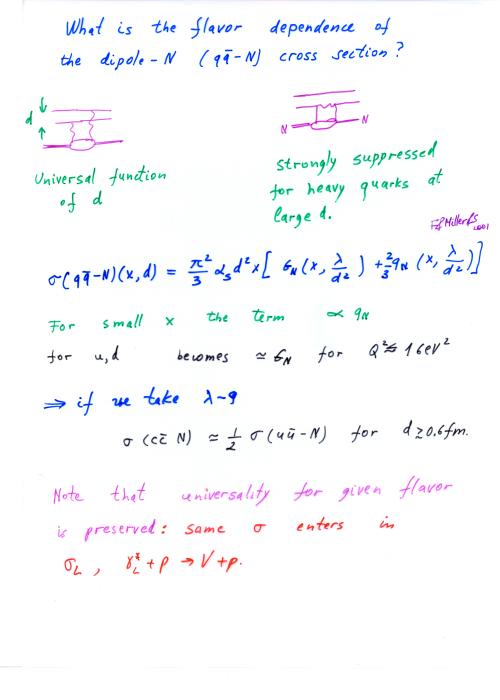 What is the flavor dependence of
the dipole-N (qq̄-N) cross section?
d
N N
Universal function
of d
strongly suppressed
for heavy quarks at
large d.
σ(qq̄-N)(x,d) = π²/3 αₛd²x[ G_N(x, λ/d²) + 2/3 q_N(x, λ/d²)]
For small x the term ∝ q_N
for u,d becomes ≃ G_N for Q² ≲ 1 GeV²
⇒ if we take λ~9
σ(cc̄ N) ≃ 1/2 σ(uū-N) for d ≥ 0.6 fm.
Note that universality for given flavor
is preserved: same σ enters in
σ_L, γ*_L + p → V + p.